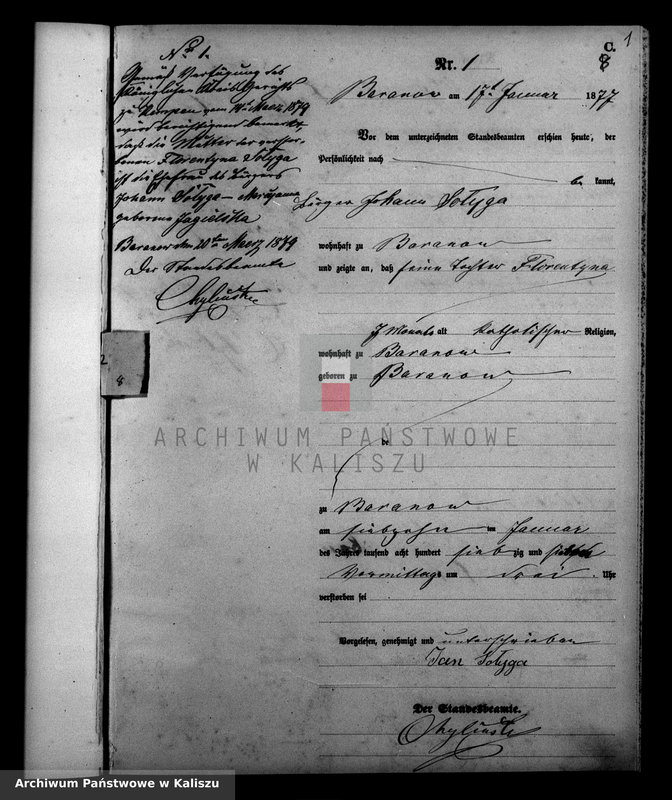 1
C.
8
Nr. 1
Baranow am 17t Januar 1877
Vor dem unterzeichneten Standesbeamten erschien heute, der
Persönlichkeit nach
be kannt,
Bürger Johann Sołyga
wohnhaft zu Baranow
und zeigte an, daß seine Tochter Florentyna
7 Monate alt katholischer Religion,
wohnhaft zu Baranow
geboren zu Baranow
de
zu Baranow
am siebzehn ten Januar
des Jahres tausend acht hundert sieb zig und sieben
Vormittags um drei Uhr
verstorben sei
Vorgelesen, genehmigt und unterschrieben
Jan Sołyga
Der Standesbeamte.
No 1.
Gemäß Verfügung des
Königlichen Kreis Gerichts
zu Kempen vom Maerz 1879
wird berichtigend bemerkt,
daß die Mutter der verstor-
benen Florentyna Sołyga
ist die Ehefrau des Bürgers
Johann Sołyga – Maryanna
geborene Jagielska
Baranow den 20ten Maerz 1879
Der Standesbeamte
2
8
ARCHIWUM PAŃSTWOWE
W KALISZU
Archiwum Państwowe w Kaliszu